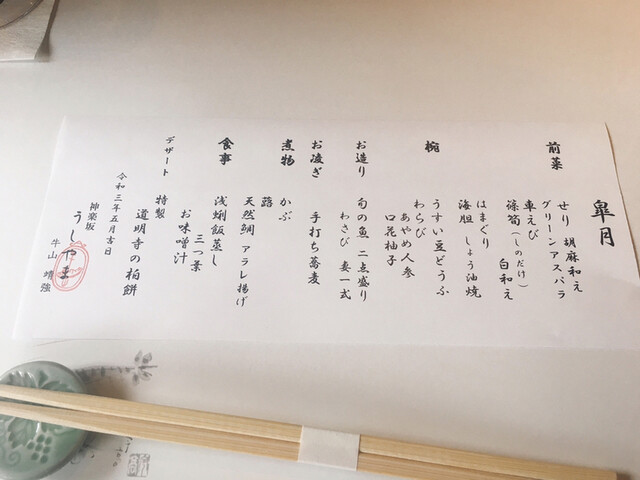 皐月
前菜
せり 胡麻和え
グリーンアスパラ
車えび
篠筍(しのだけ) 白和え
はまぐり
海胆 しょう油焼
椀
うすい豆どうふ
わらび
あやめ人参
口花柚子
お造り
旬の魚 二点盛り
わさび 妻一式
お凌ぎ
手打ち蕎麦
煮物
かぶ
蕗
天然鯛 アラレ揚げ
食事
浅蜊飯蒸し
三つ葉
お味噌汁
デザート
特製
道明寺の柏餅
令和三年五月吉日
神楽坂
うしやま
牛山 靖強